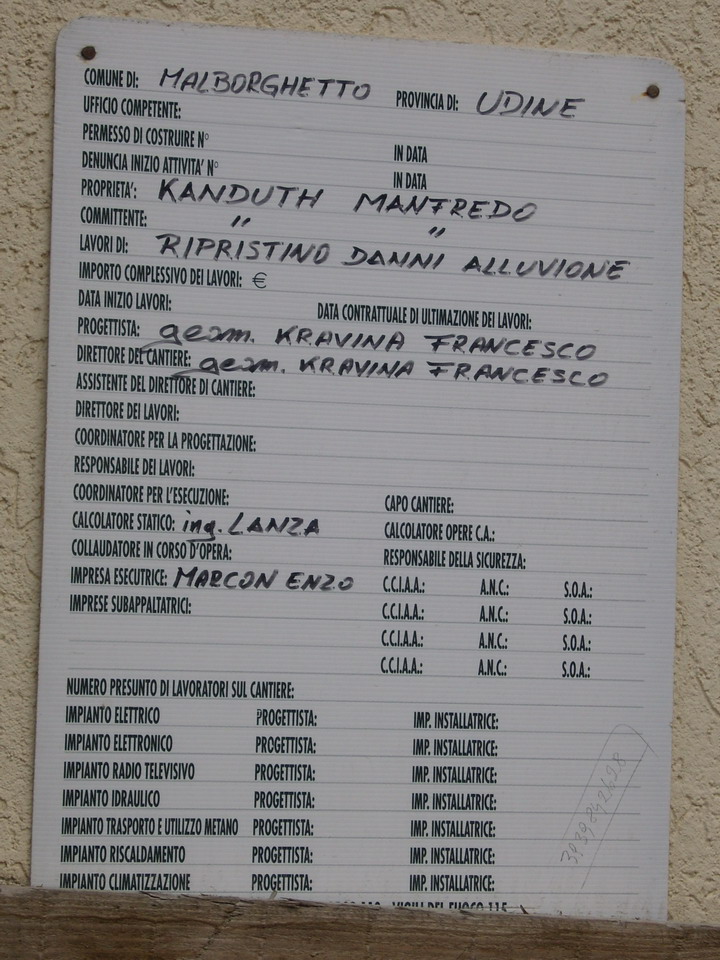 COMUNE DI: MALBORGHETTO PROVINCIA DI: UDINE
UFFICIO COMPETENTE:
PERMESSO DI COSTRUIRE N° IN DATA
DENUNCIA INIZIO ATTIVITA' N° IN DATA
PROPRIETA': KANDUTH MANFREDO
COMMITTENTE: " "
LAVORI DI: RIPRISTINO DANNI ALLUVIONE
IMPORTO COMPLESSIVO DEI LAVORI: €
DATA INIZIO LAVORI: DATA CONTRATTUALE DI ULTIMAZIONE DEI LAVORI:
PROGETTISTA: geom. KRAVINA FRANCESCO
DIRETTORE DEL CANTIERE: geom. KRAVINA FRANCESCO
ASSISTENTE DEL DIRETTORE DI CANTIERE:
DIRETTORE DEI LAVORI:
COORDINATORE PER LA PROGETTAZIONE:
RESPONSABILE DEI LAVORI:
COORDINATORE PER L'ESECUZIONE: CAPO CANTIERE:
CALCOLATORE STATICO: ing. LANZA CALCOLATORE OPERE C.A.:
COLLAUDATORE IN CORSO D'OPERA: RESPONSABILE DELLA SICUREZZA:
IMPRESA ESECUTRICE: MARCON ENZO C.C.I.A.A.: A.N.C.: S.O.A.:
IMPRESE SUBAPPALTATRICI: C.C.I.A.A.: A.N.C.: S.O.A.:
C.C.I.A.A.: A.N.C.: S.O.A.:
C.C.I.A.A.: A.N.C.: S.O.A.:
NUMERO PRESUNTO DI LAVORATORI SUL CANTIERE:
IMPIANTO ELETTRICO PROGETTISTA: IMP. INSTALLATRICE:
IMPIANTO ELETTRONICO PROGETTISTA: IMP. INSTALLATRICE:
IMPIANTO RADIO TELEVISIVO PROGETTISTA: IMP. INSTALLATRICE:
IMPIANTO IDRAULICO PROGETTISTA: IMP. INSTALLATRICE:
IMPIANTO TRASPORTO E UTILIZZO METANO PROGETTISTA: IMP. INSTALLATRICE:
IMPIANTO RISCALDAMENTO PROGETTISTA: IMP. INSTALLATRICE:
IMPIANTO CLIMATIZZAZIONE PROGETTISTA: IMP. INSTALLATRICE:
VIGILI DEL FUOCO 115